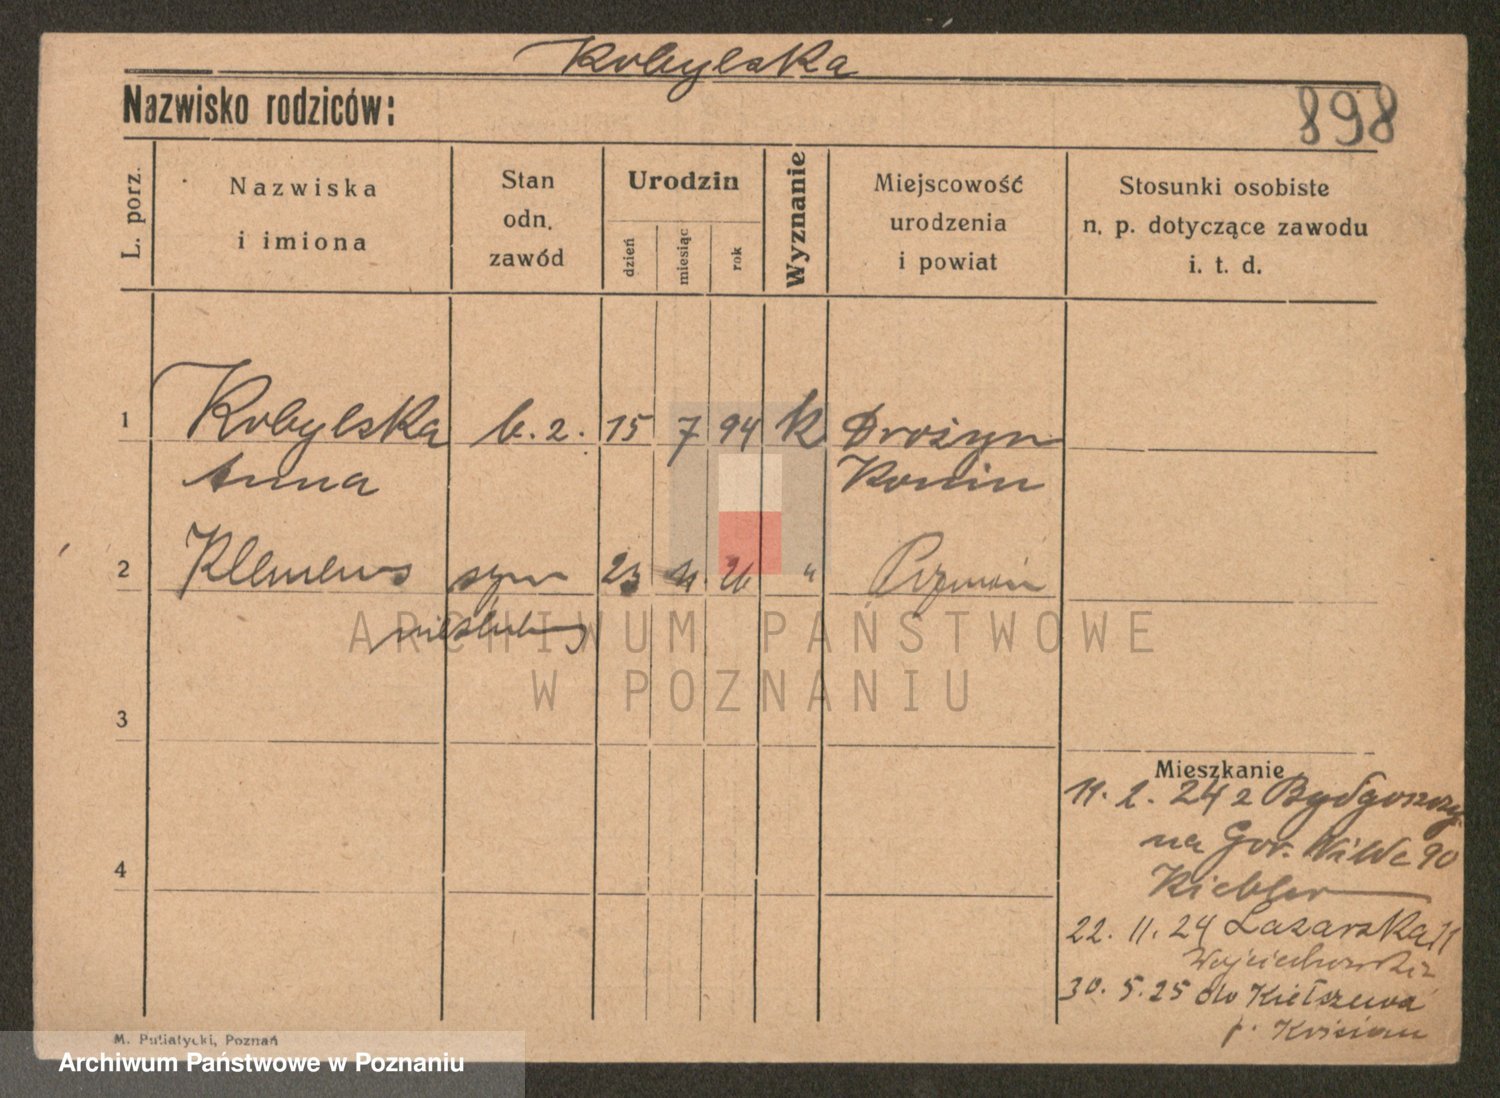 Kobylska
Nazwisko rodziców:
898
L. porz.
Nazwiska
i imiona
Stan
odn.
zawód
Urodzin
dzień
miesiąc
rok
Wyznanie
Miejscowość
urodzenia
i powiat
Stosunki osobiste
n. p. dotyczące zawodu
i. t. d.
1 Kobylska b. z. 15 7 94 k Drożyn
Anna Konin
2 Klemens syn 23 11. 26 " Poznań
nieślubny
3
Mieszkanie
11. 2. 24 z Bydgoszczy
na Gor. Wilde 90
4
Kiebler
22. 11. 24 Lazarska 11
Wojciechowski
30. 5. 25 do Kiełczewa
p. Kościan
M. Putiatycki, Poznań
ARCHIWUM PAŃSTWOWE
W POZNANIU
Archiwum Państwowe w Poznaniu